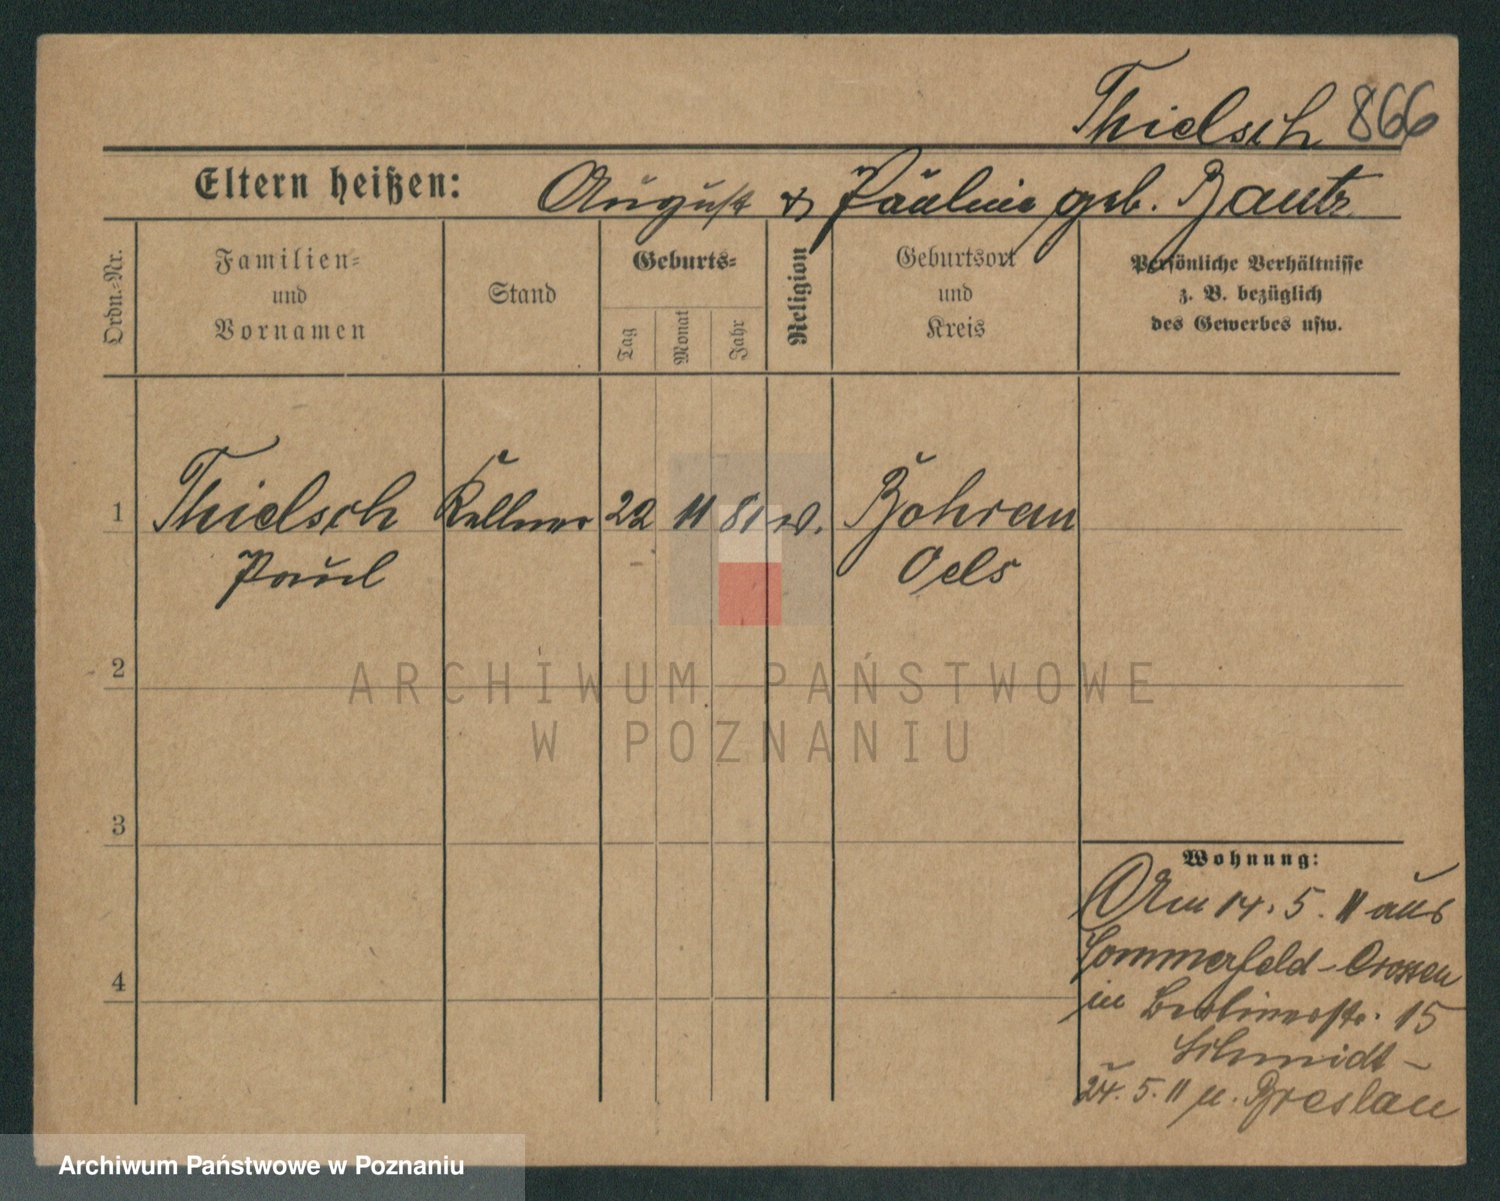 Thielsch 866
Eltern heißen: August & Pauline geb. Bautz
Ordn.-Nr.
Familien- und Vornamen
Stand
Geburts-
Tag
Monat
Jahr
Religion
Geburtsort und Kreis
Persönliche Verhältnisse
z. B. bezüglich
des Gewerbes usw.
1 Thielsch Kellner 22 11 81 Bohrau
Paul Oels
2
ARCHIWUM PAŃSTWOWE
W POZNANIU
3
Wohnung:
Am 14. 5. 11 aus
Sommerfeld - Crossen
4
in Berlinerstr. 15
Schmidt -
24. 5. 11 n. Breslau
Archiwum Państwowe w Poznaniu